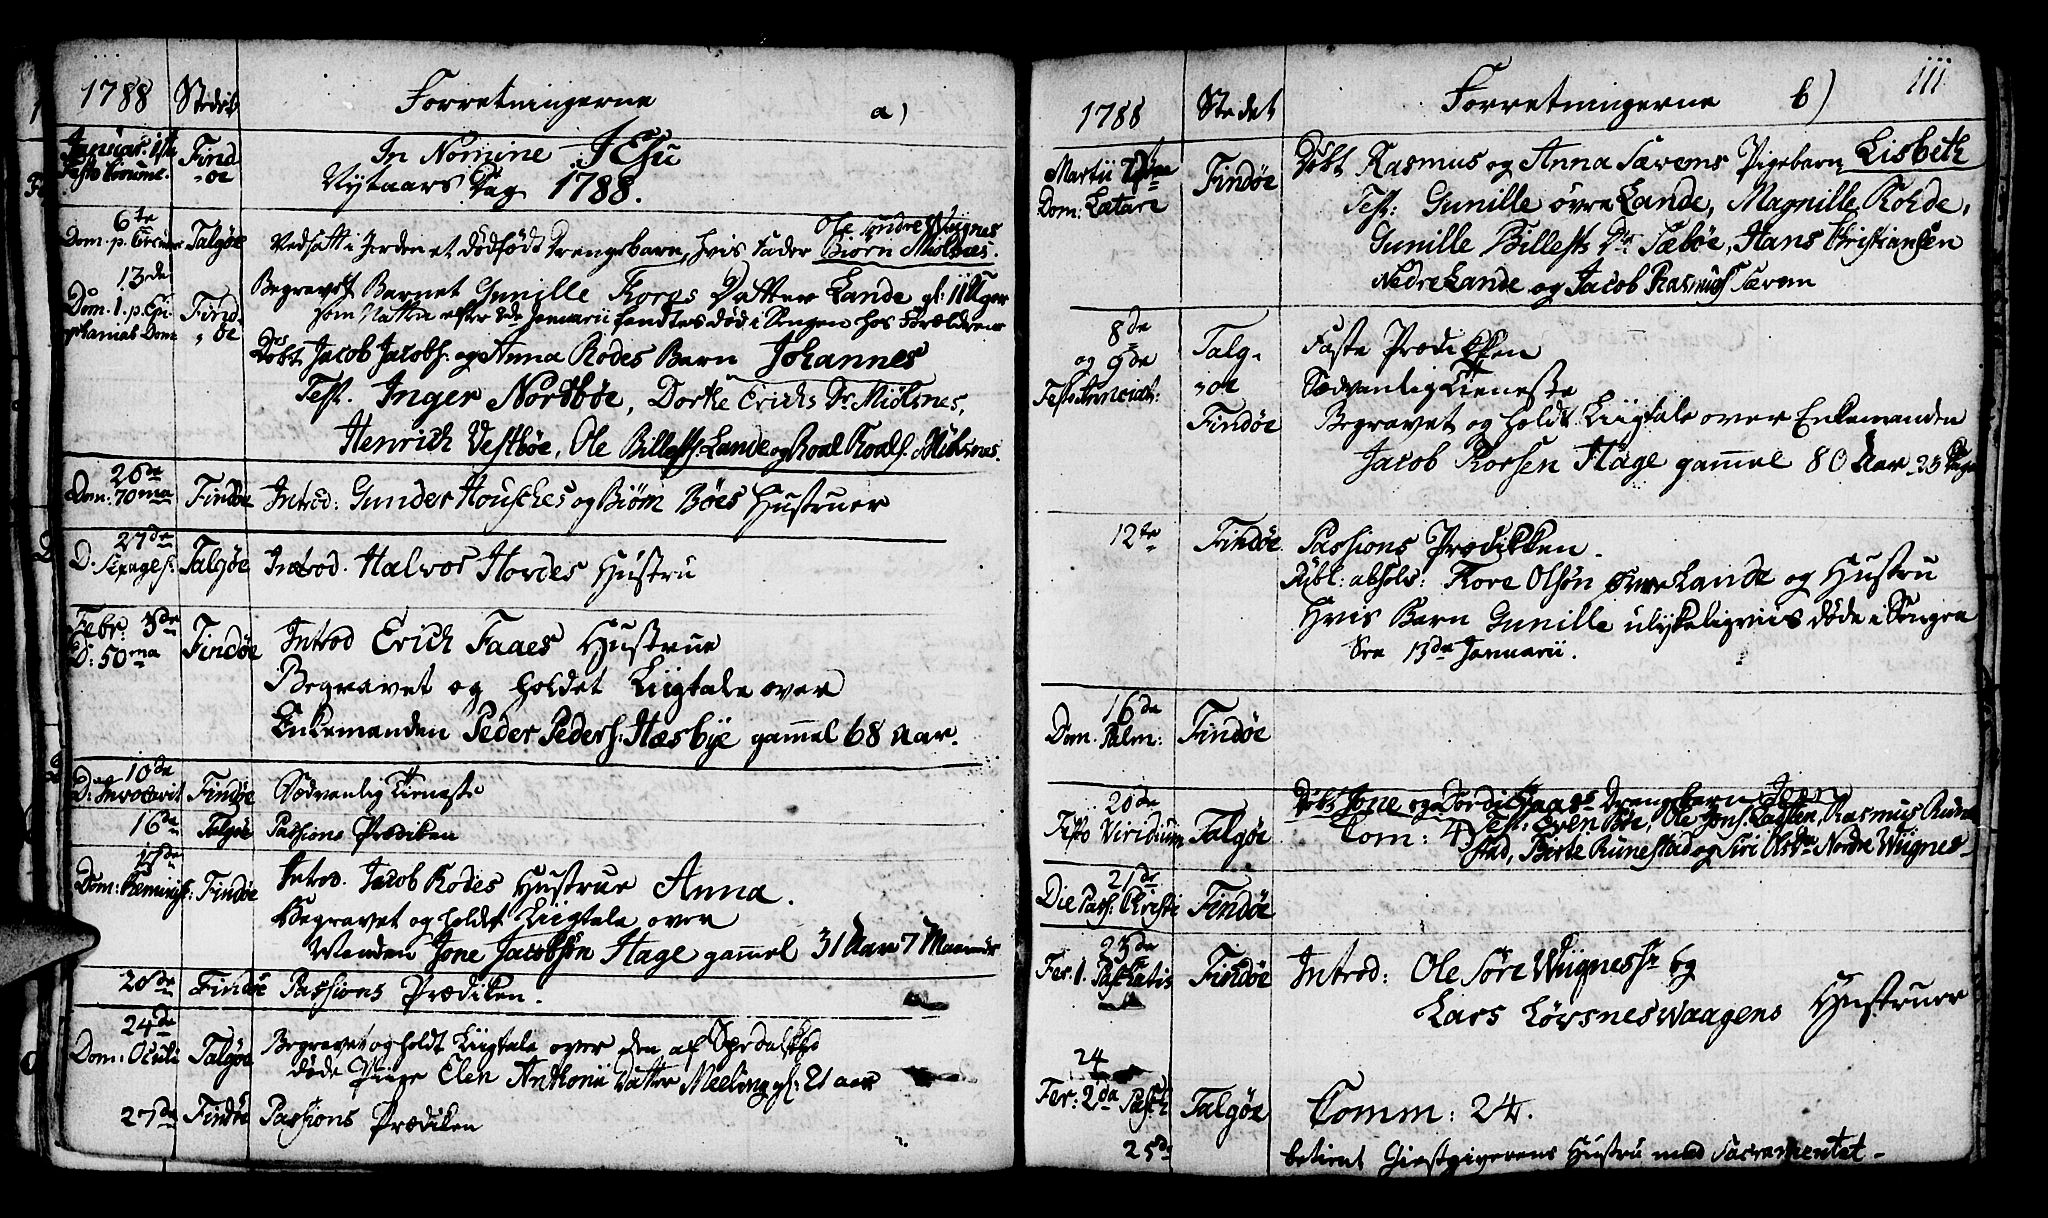 1788 Stedet Forretningerne a)
Januar. 1ste Festo Circumc. Find-
øe In Nomine JEsu
Nytaars Dag 1788.
6te
Dom. p. Circumc. Talgøe Nedsatt i Jorden et dødfødt Drengebarn, hvis Fader Ole Søndre Wignes
Biørn Miølsnes.
13de
Dom. 1. p. Epi-
phanias Dom. Find-
øe Begravet Barnet Gunille Tores Datter Lande gl: 11 Uger
som Natten efter 8de Januarii fandtes død i Sengen hos Forældrene
Døbt Jacob Jacobs. og Anna Rodes Barn Johannes
Test. Inger Nordbøe, Dorthe Erichs Dr Miølsnes,
Henrich Vestbøe, Ole Billests. Lande og Roal Roals. Miølsnes.
20de
Dom: 70ma Findøe Introd: Gunder Housches og Biørn Bøes Hustruer
27de
D. Sexages. Talgøe Introd. Halvor Hordes Hustru
Febr: 3de
D: 50ma Findøe Introd Erich Faaes Hustrue
Begravet og holdet Liigtale over
Enkemanden Peder Peders. Hæsbye gammel 68 Aar.
10de
D: Invocavit Findøe Sædvanlig Tieneste
16de Talgøe Passions Prædiken
17de
Dom: Reminisc: Findøe Introd. Jacob Rodes Hustrue Anna.
Begravet og holdt Liigtale over
Manden Jone Jacobsøn Hage gammel 31 Aar 7 Maaneder
20de Findøe Passions Prædiken.
24de
Dom: Oculi Talgøe Begravet og holdt Liigtale over den af Spedalskhed
døde Pige Elen Anthonii Datter Meeling gl: 21 aar
27de Findøe Passions Prædiken
1788 Stedet Forretningerne b) 111
Martii 2den
Dom: Lætare Findøe Døbt Rasmus og Anna Særems Pigebarn Lisbeth
Test: Gunille øvre Lande, Magnille Rohde,
Gunille Billests Dr Sæbøe, Hans Christiansen
Nedre Lande og Jacob Rasmuss. Særem
8de Talg-
øe Faste Prædikken
og 9de
Festo Annunciat: Sædvanlig Tieneste
Findøe Begravet og holdt Liigtale over Enkemanden
Jacob Torsen Hage gammel 80 Aar 25 Dage
12te Findøe Passions Prædikken.
Publ: absolv: Tore Olsøn øvre Lande og Hustru
Hvis Barn Gunille ulykeligviis døde i Sengen
See 13de Januarii.
16de
Dom. Palm: Findøe
20de
Festo Viridium Talgøe Døbt Jone og Sordi Faaes Drengebarn
Com: 4 Test: Even Bøe, Ole Jons. Lasten, Rasmus Rune-
stad, Birte Runestad og Siri Olsdr. Nordre Wiignes
21de
Die Pass: Christi Findøe
23de
Fer. 1. Paschatis Findøe Introd: Ole Søre Wiigness og
Lars Lørsneswaagens Hustruer
24
Fer: 2da Pasch Talgøe Comm: 24.
25de betient Giestgiverens Hustru med Sacramentet